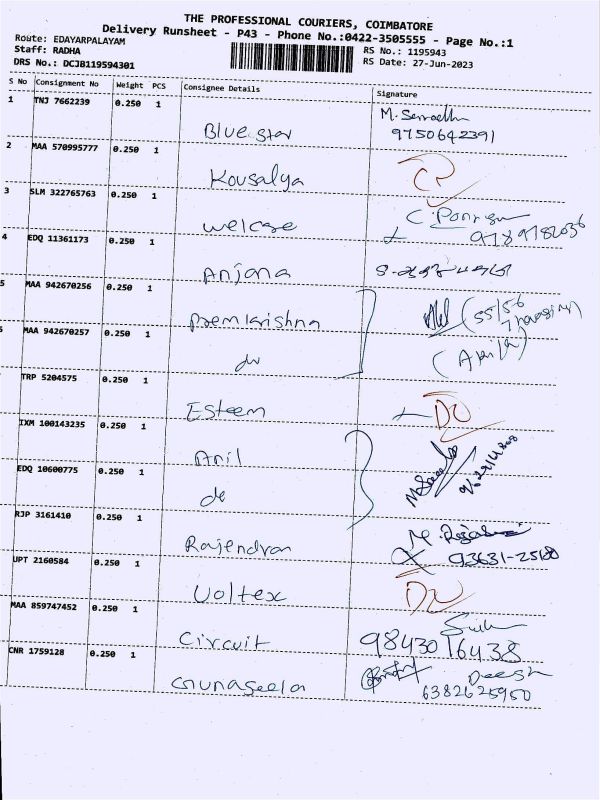 THE PROFESSIONAL COURIERS, COIMBATORE
Delivery Runsheet - P43 - Phone No.:0422-3505555 - Page No.:1
Route: EDAYARPALAYAM
Staff: RADHA
DRS No.: DCJB119594301
RS No.: 1195943
RS Date: 27-Jun-2023
S No Consignment No Weight PCS Consignee Details Signature
1 TNJ 7662239 0.250 1 Blue star M.
9750642391
2 MAA 570995777 0.250 1 Kousalya
3 SLM 322765763 0.250 1 welcare C.
9789782036
4 EDQ 11361173 0.250 1 Anjana
5 MAA 942670256 0.250 1 Premkrishna (55/56
MAA 942670257 0.250 1 do
TRP 5204575 0.250 1 Esteem
IXM 100143235 0.250 1 Anil
EDQ 10600775 0.250 1 do
RJP 3161410 0.250 1 Rajendran M.
UPT 2160584 0.250 1 Voltex
MAA 859747452 0.250 1 Circuit
9843016438
CNR 1759128 0.250 1 Gunaseelan Deesh
6382625950